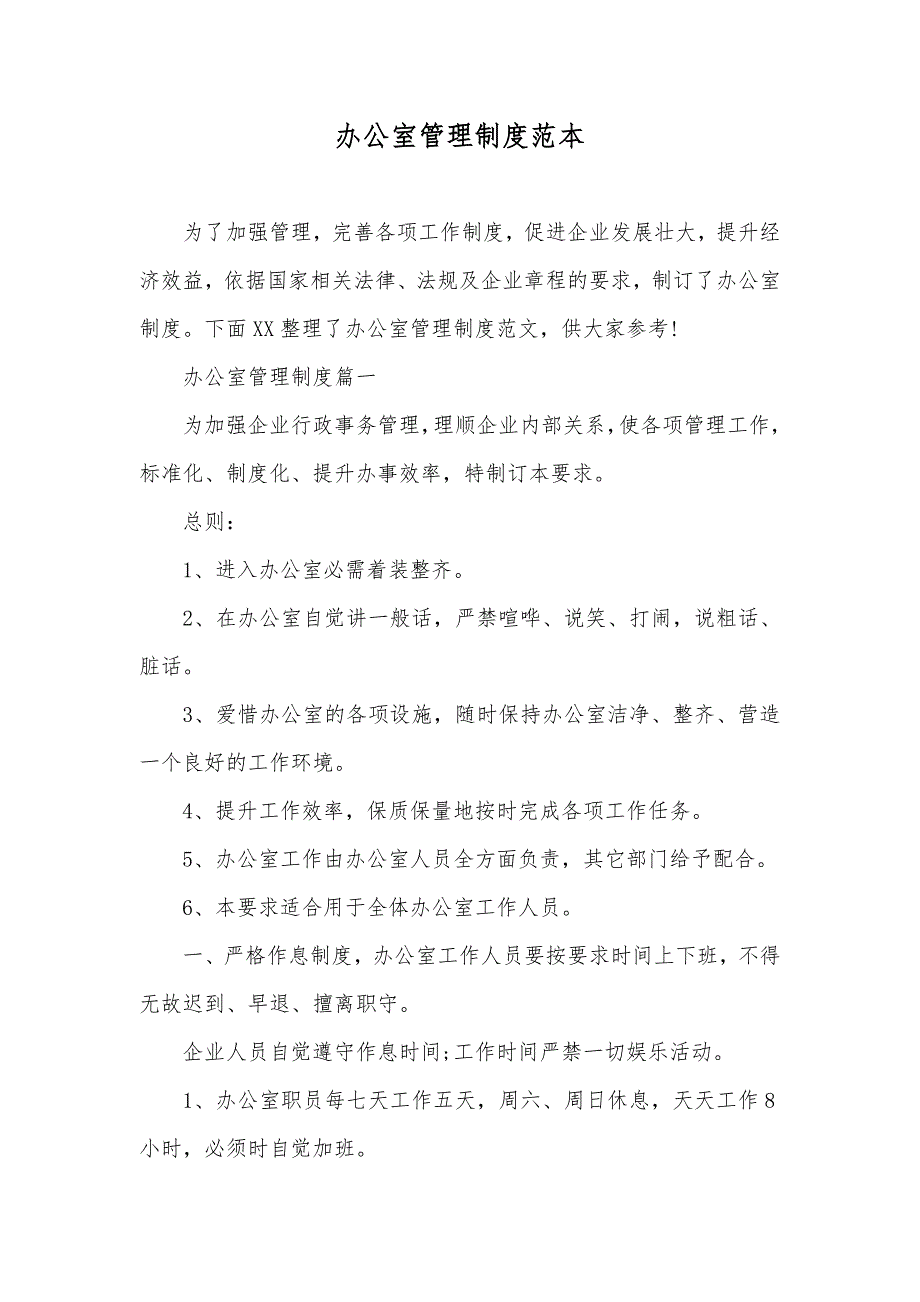 办公室管理制度范本
为了加强管理，完善各项工作制度，促进企业发展壮大，提升经
济效益，依据国家相关法律、法规及企业章程的要求，制订了办公室
制度。下面XX整理了办公室管理制度范文，供大家参考!
办公室管理制度篇一
为加强企业行政事务管理，理顺企业内部关系，使各项管理工作，
标准化、制度化、提升办事效率，特制订本要求。
总则：
1、进入办公室必需着装整齐。
2、在办公室自觉讲一般话，严禁喧哗、说笑、打闹，说粗话、
脏话。
3、爱惜办公室的各项设施，随时保持办公室洁净、整齐、营造
一个良好的工作环境。
4、提升工作效率，保质保量地按时完成各项工作任务。
5、办公室工作由办公室人员全方面负责，其它部门给予配合。
6、本要求适合用于全体办公室工作人员。
一、严格作息制度，办公室工作人员要按要求时间上下班，不得
无故迟到、早退、擅离职守。
企业人员自觉遵守作息时间;工作时间严禁一切娱乐活动。
1、办公室职员每七天工作五天，周六、周日休息，天天工作8
小时，必须时自觉加班。